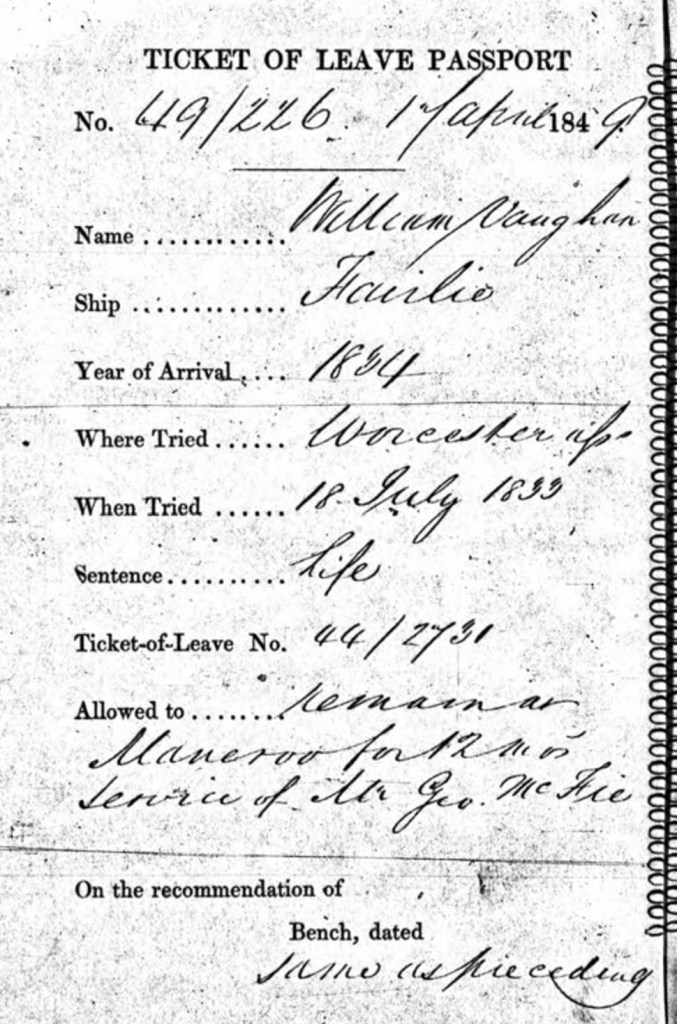 TICKET OF LEAVE PASSPORT
No. 49/226 17 April 1849
Name ............ William Vaughan
Ship ............. Fairlie
Year of Arrival .... 1834
Where Tried ...... Worcester ass
When Tried ...... 18 July 1833
Sentence.......... Life
Ticket-of-Leave No. 44/2731
Allowed to ........ remain at
Maneroo for 12 mos
service of Mr Geo. McFie
On the recommendation of
Bench, dated
same as preceding